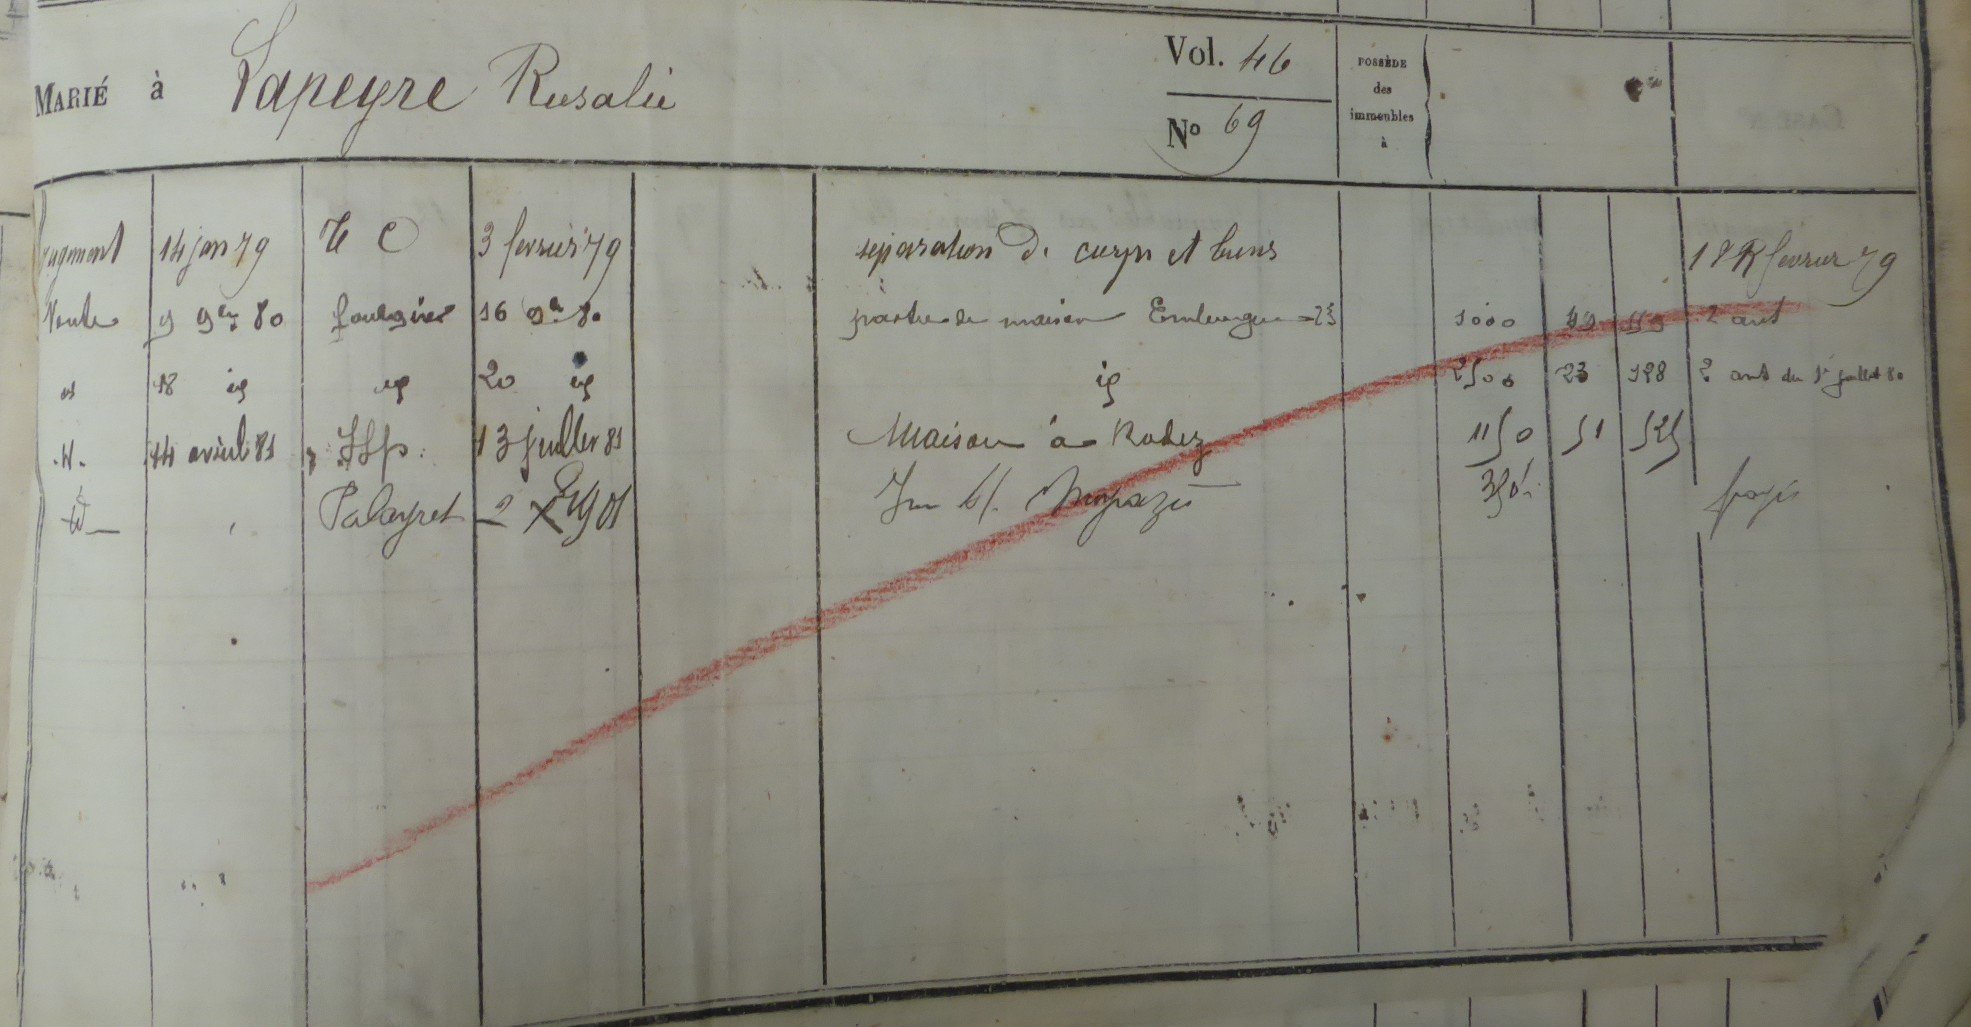 MARIÉ à Lapeyre Rosalie Vol. 46 Nº 69 POSSÈDE des immeubles à
Jugement 14 jan 79 T C 3 fevrier 79 séparation de corps et biens 18 R fevrier 79
Vente 9 9bre 80 16 9bre 80 partie de maison 1000 2 ans
id 18 id id 20 id id 2500 23 128 2 ans du 1r juillet 80
id. 14 avril 81 SSp. 13 juillet 81 Maison à Rodez 1150 51 525
id Palayret 2 Xbre 1901 350 payé